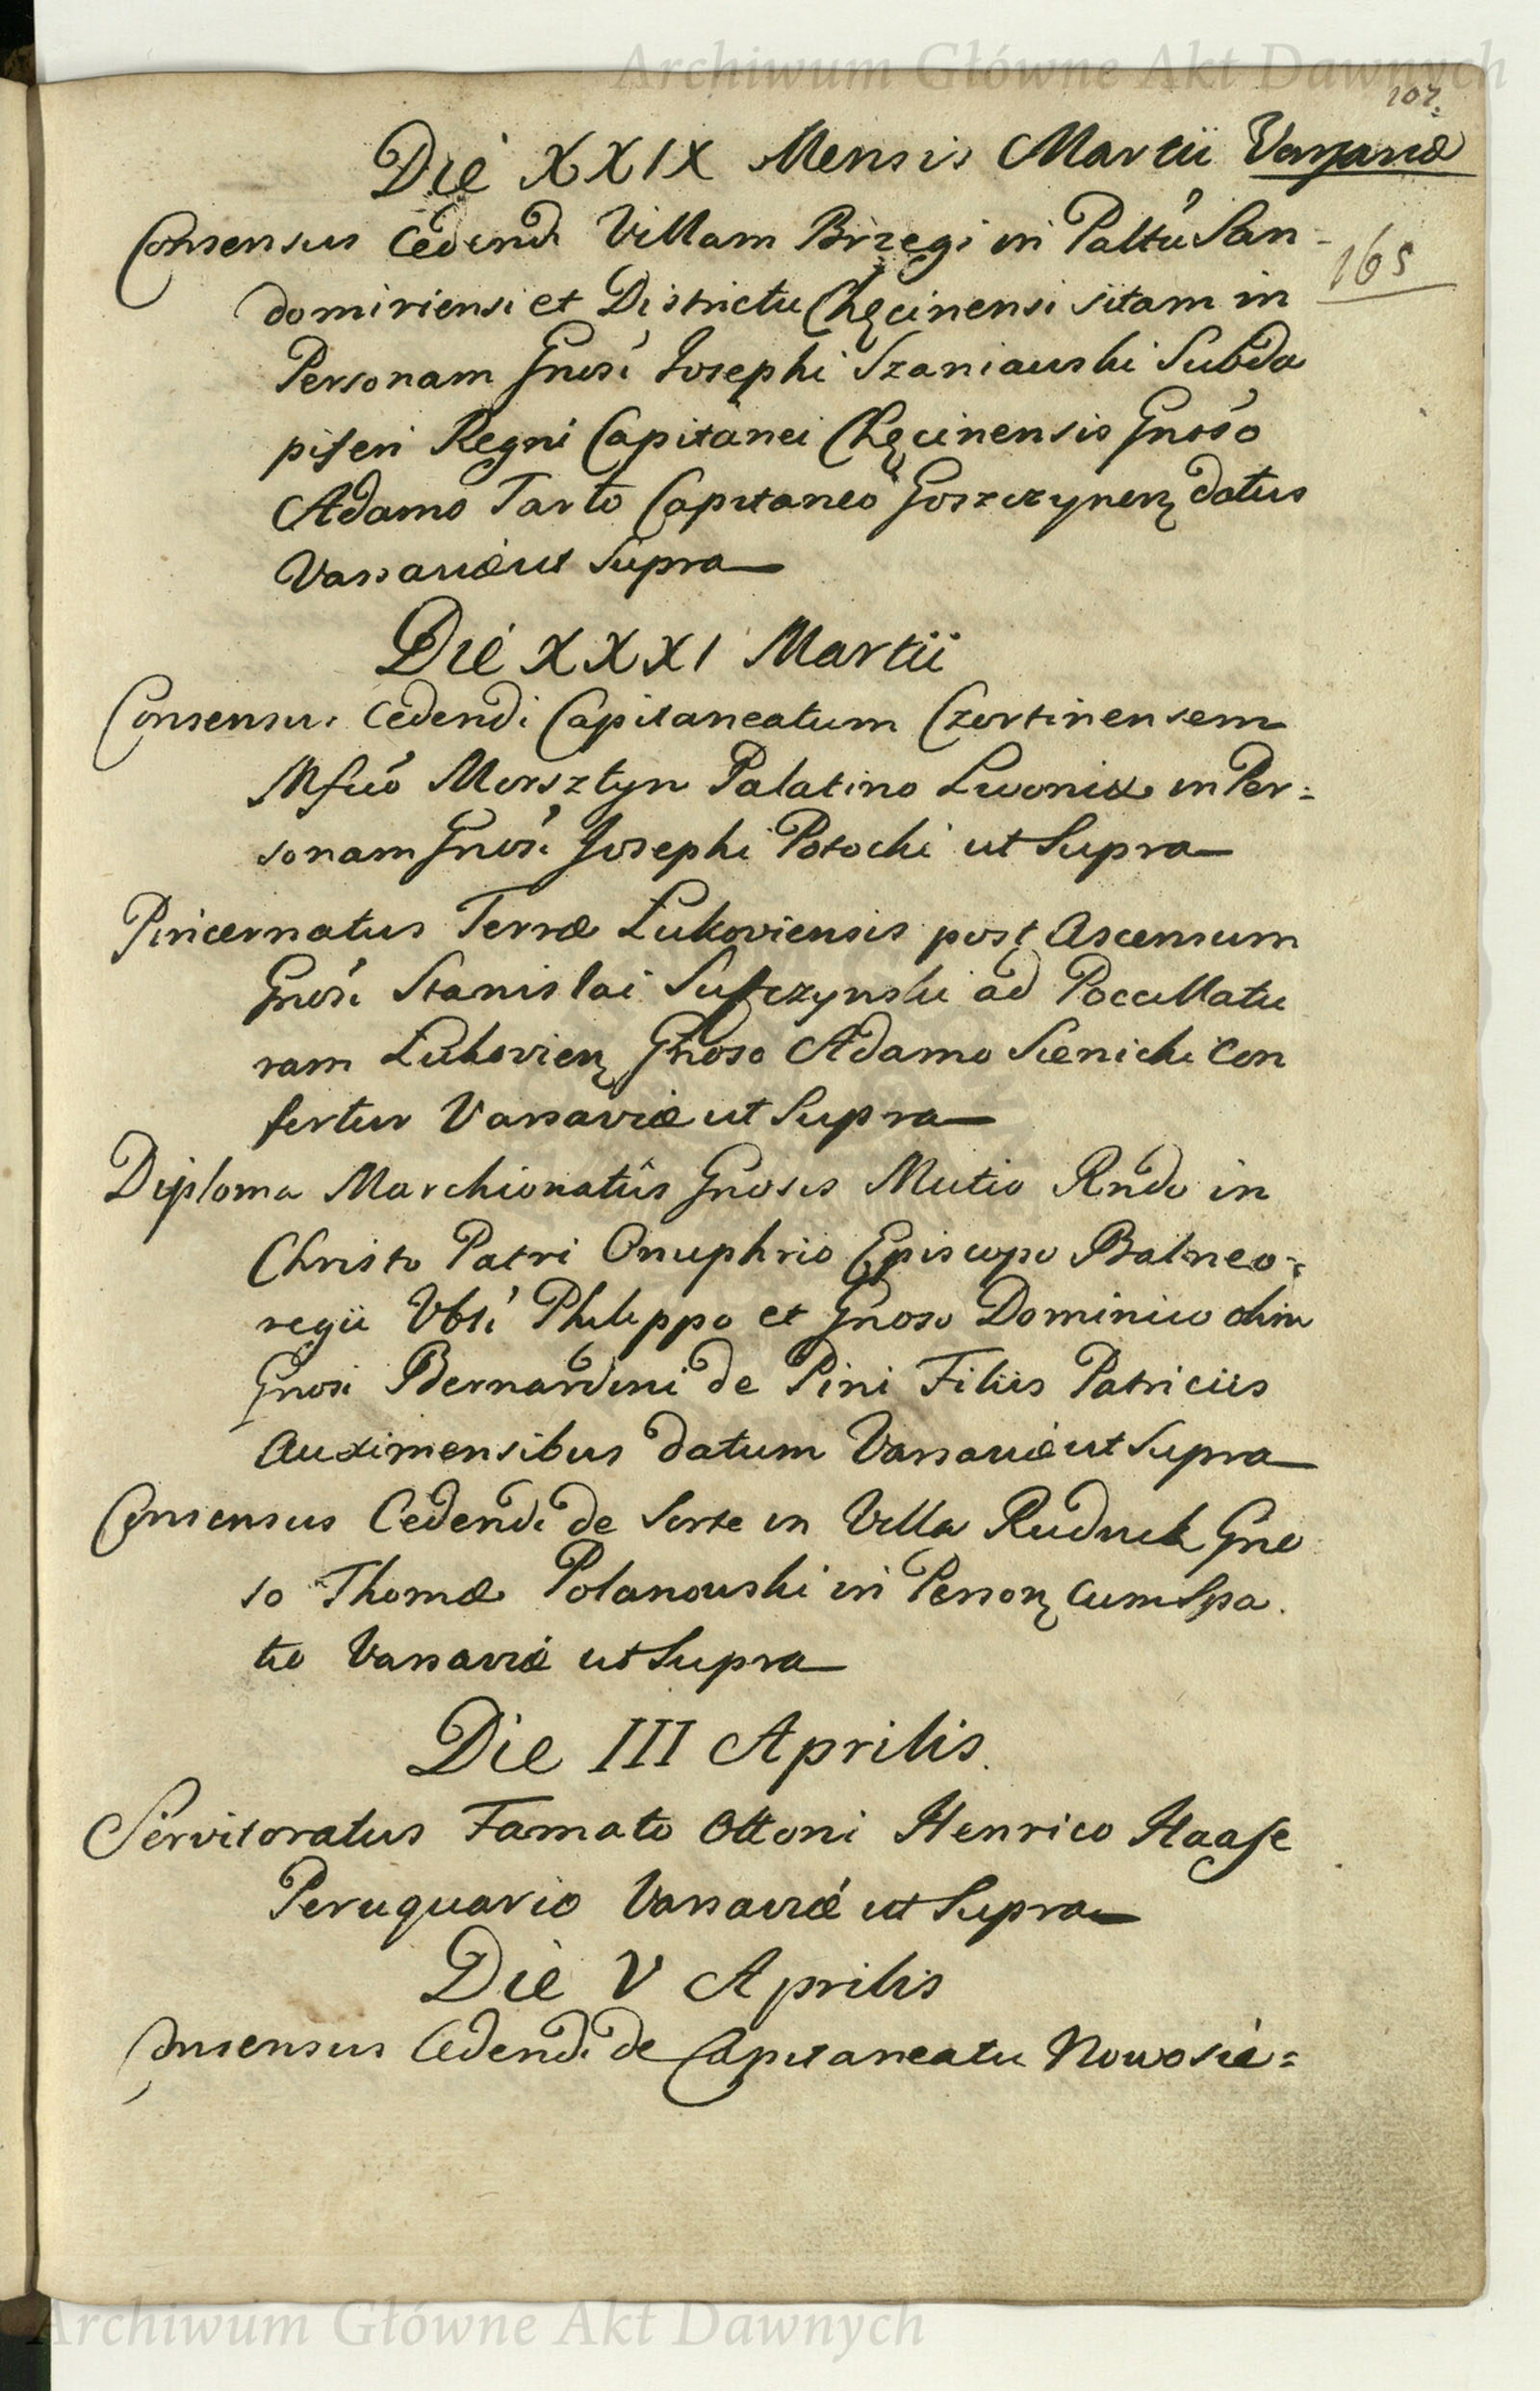 Archiwum Główne Akt Dawnych
107.
Die XXIX Mensis Martii Varsaviæ
165
Consensus Cedendi Villam Brzegi in Paltu San-
domiriensi et Districtu Chęcinensi sitam in
Personam Gnosi Josephi Szaniawski Subda
piferi Regni Capitanei Chęcinensis Gnoso
Adamo Tarło Capitaneo Goszczynen datus
Varsaviæ ut Supra
Die XXXI Martii
Consensus Cedendi Capitaneatum Czorstinensem
Mfico Morsztyn Palatino Livoniæ in Per=
sonam Gnosi Josephi Potocki ut Supra
Pincernatus Terræ Łukoviensis post Ascensum
Gnosi Stanislai Sufczynski ad Pocillatu
ram Łukovien Gnoso Adamo Sienicki Con
fertur Varsaviæ ut Supra
Diploma Marchionatûs Gnosis Mutio Rndo in
Christo Patri Onuphrio Episcopo Balneo=
regii Philippo et Gnoso Dominico olim
Gnosi Bernardini de Pini Filiis Patriciis
Auximensibus datum Varsaviæ ut Supra
Consensus Cedendi de Sorte in Villa Rudnik Gno
so Thomæ Polanowski in Person cum Spa
tio Varsaviæ ut Supra
Die III Aprilis.
Servitoratus Famato Ottoni Henrico Haase
Peruquario Varsaviæ ut Supra
Die V Aprilis
Consensus Cedendi de Capitaneatu Nowosie=
Archiwum Główne Akt Dawnych